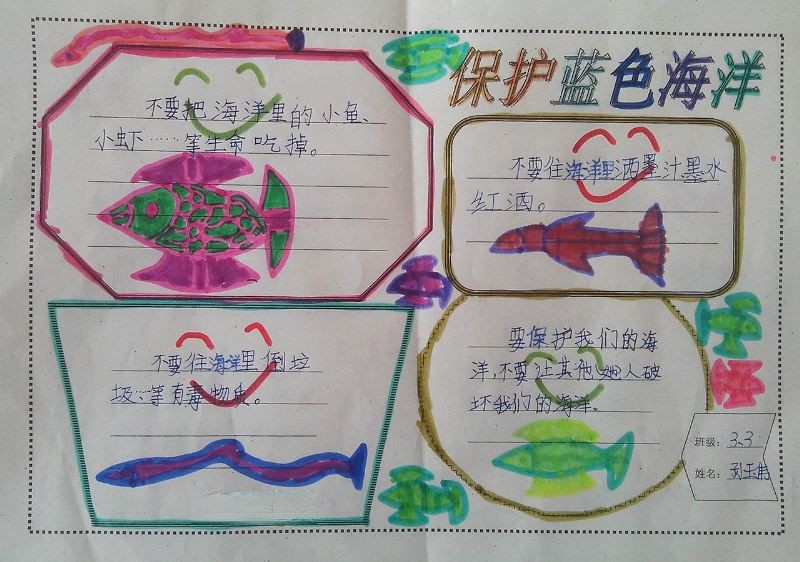 保护蓝色海洋
不要把海洋里的小鱼、
小虾……等生命吃掉。
不要往海洋里洒墨汁墨水
红酒。
不要往海洋里倒垃
圾…等有毒物质。
要保护我们的海
洋,不要让其他她人破
坏我们的海洋。
班级: 3.3
姓名: